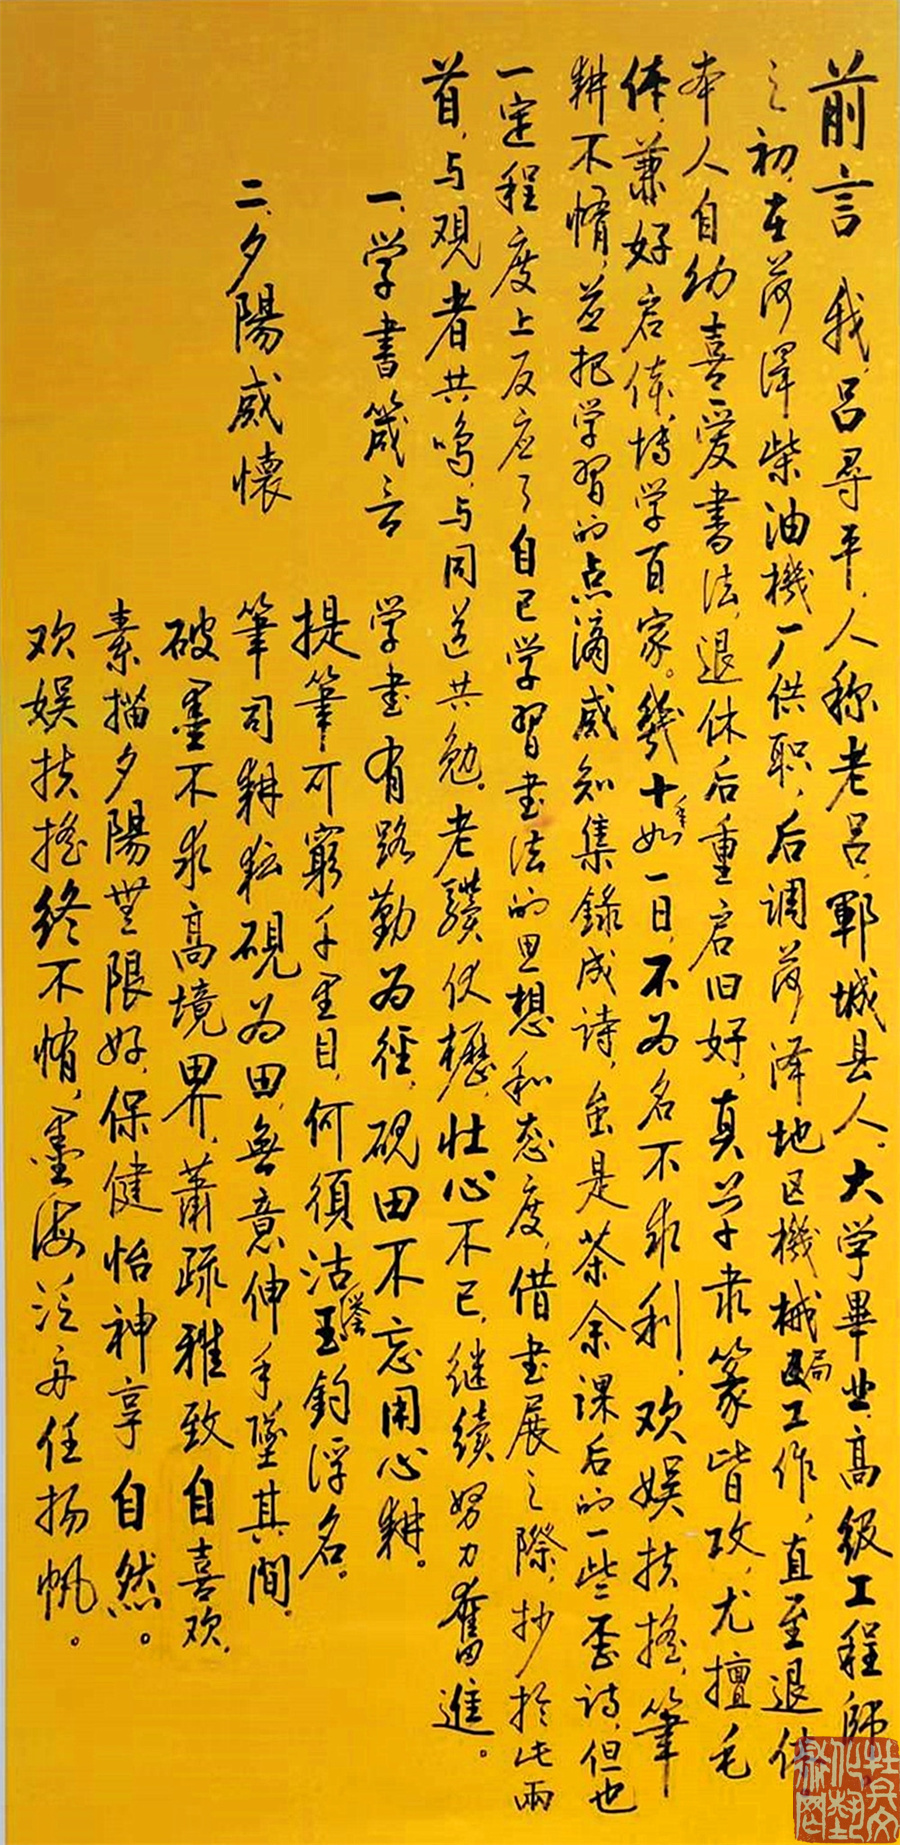 前言 我,吕寻平,人称老吕,郓城县人,大学畢业,高级工程师,
之初,在菏泽柴油機厂供职,后调菏泽地区機械局工作,直至退休,
本人自幼喜爱書法,退休后重启旧好,真草隶篆皆攻,尤擅毛
体,兼好启体,博学百家。幾十年如一日,不为名不求利,欢娱扶摇,筆
耕不惰,并把学習的点滴感知集錄成诗,虽是茶余课后的一些歪诗,但也
一定程度上反应了自己学習书法的思想和态度,借书展之際,抄於此兩
首,与观者共鸣,与同道共勉。老骥伏櫪,壮心不已,继续努力奮進。
一,学書箴言 学书有路勤为径,砚田不忘用心耕。
提筆可窮千里目,何須沽譽钓浮名。
二,夕陽感懷 筆司耕耘砚为田,無意伸手墜其间。
破墨不求高境界,蕭疏雅致自喜欢,
素描夕陽無限好,保健怡神享自然。
欢娱扶摇终不惰,墨海泛舟任扬帆。